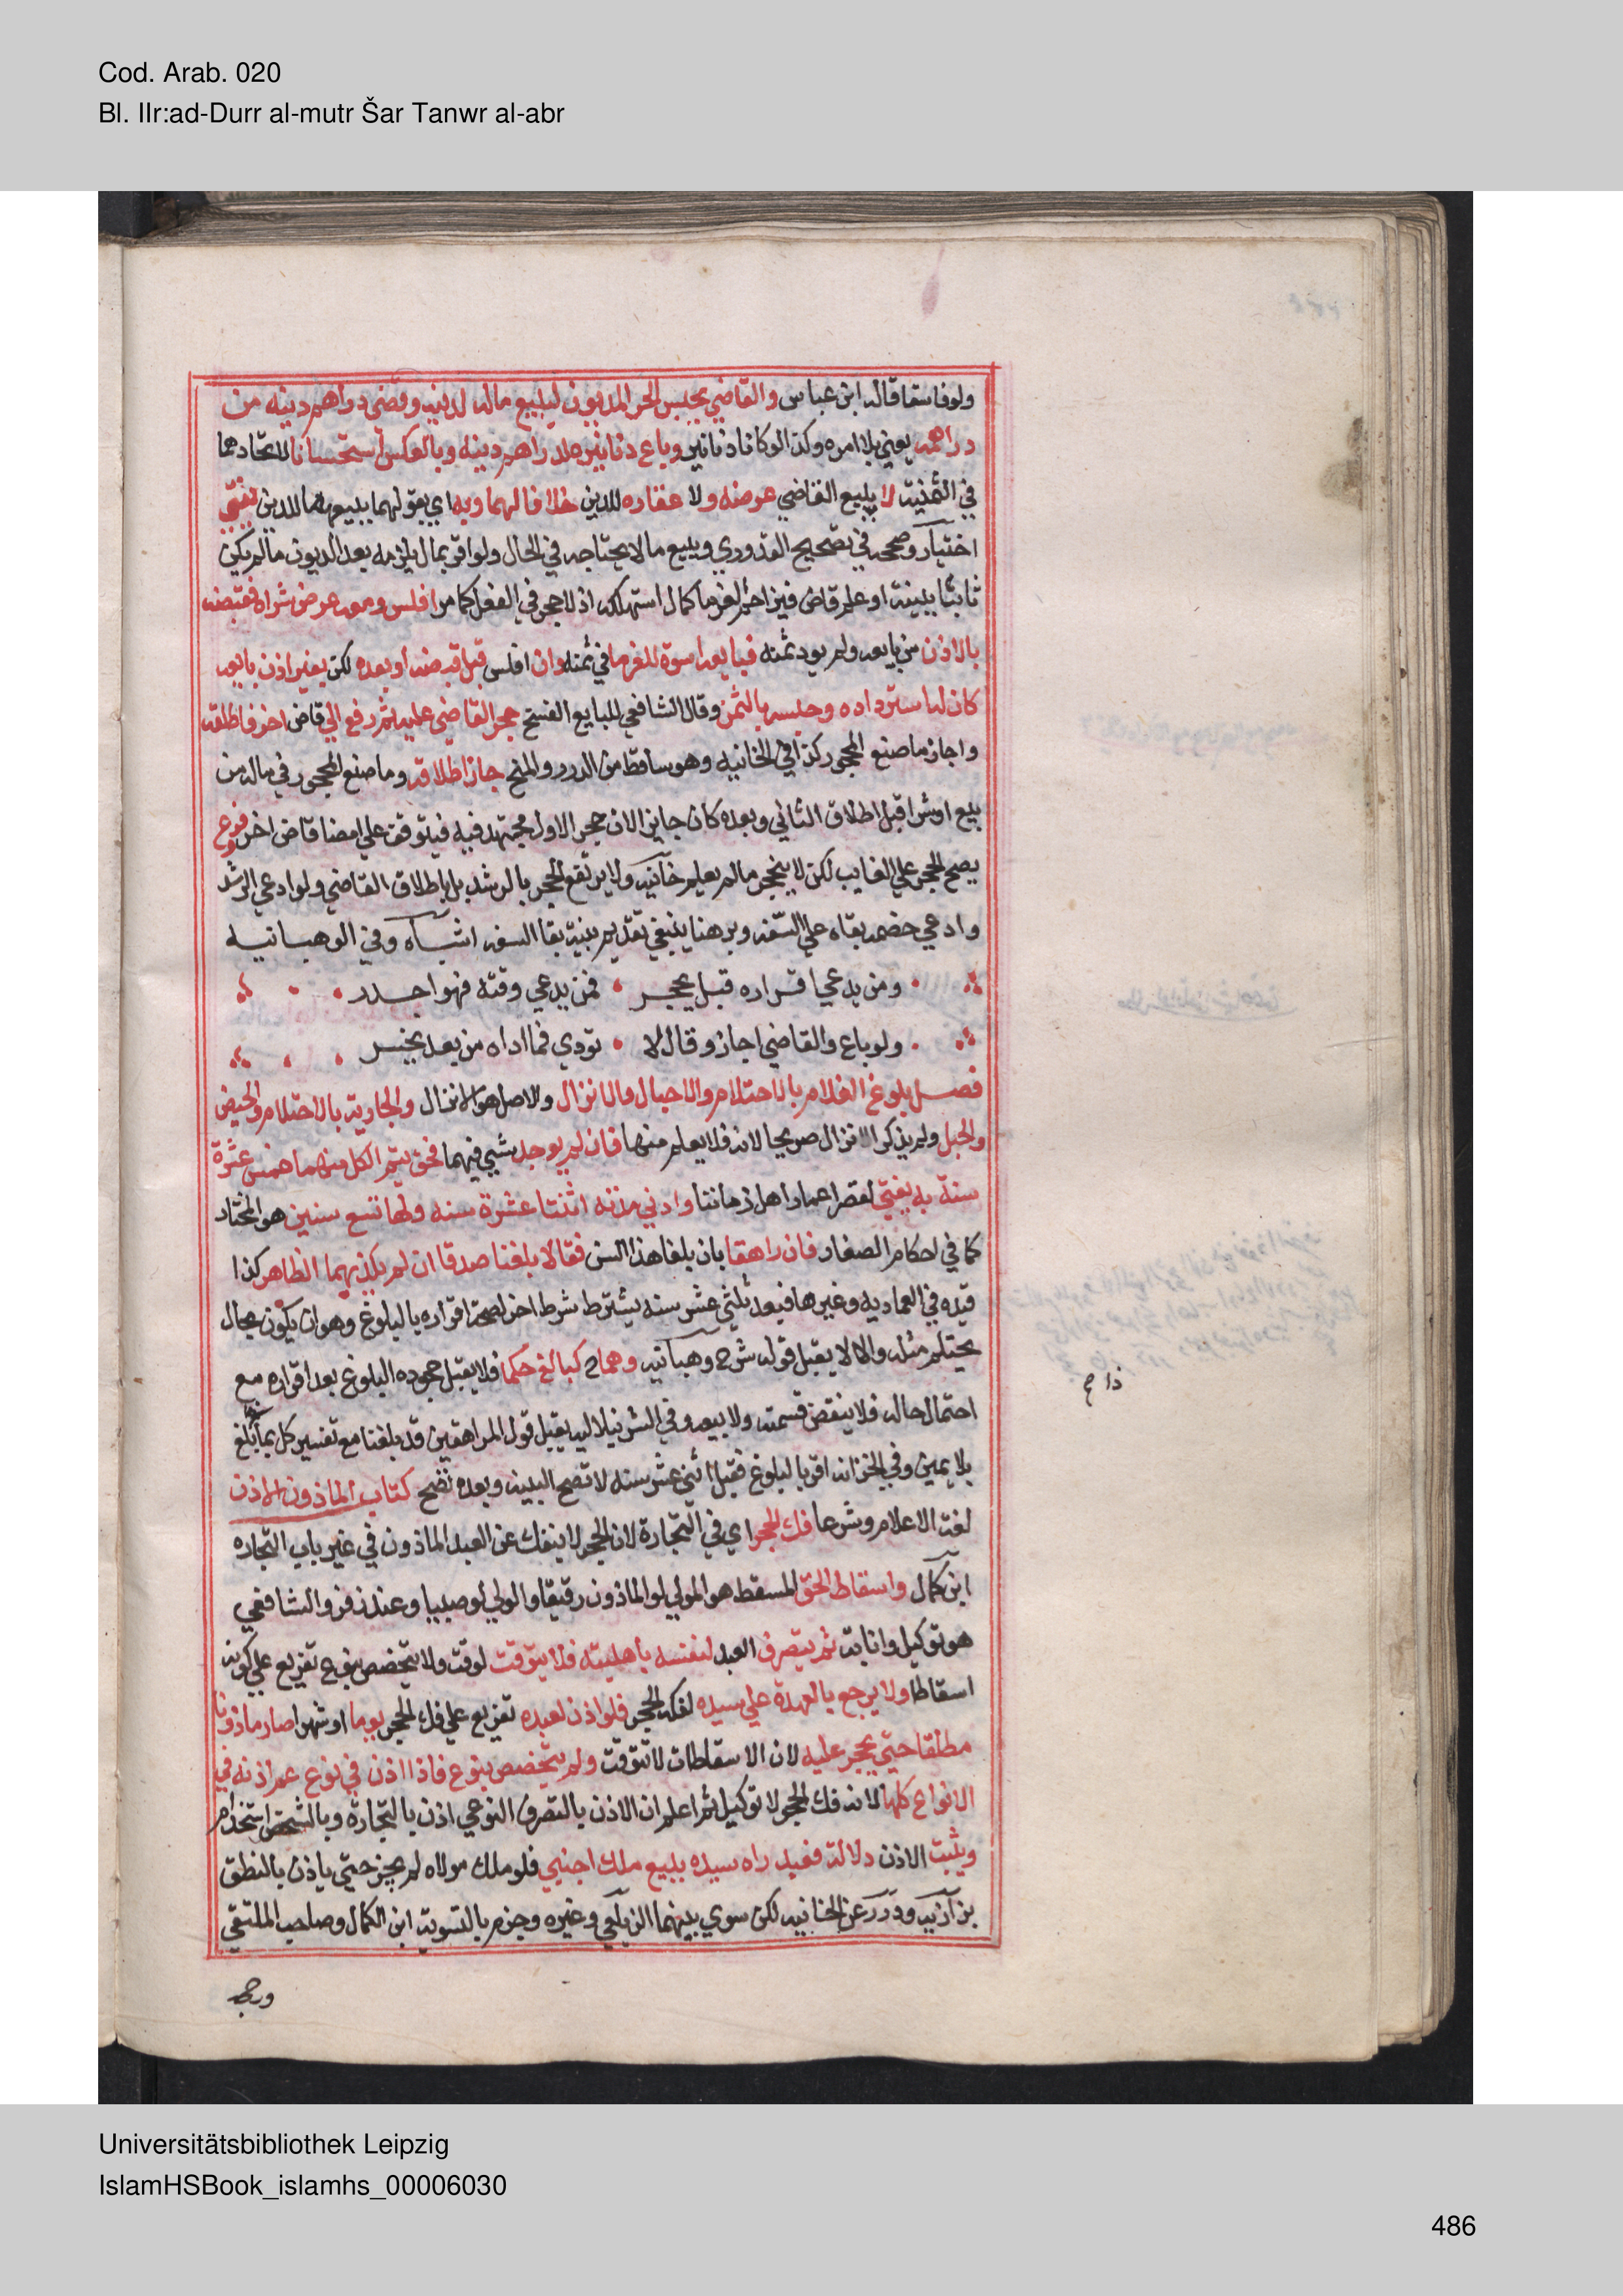 Cod. Arab. 020
Bl. IIr:ad-Durr al-mutr Šar Tanwr al-abr
ولو فاسقا قاله ابن عباس والقاضي يحبس الحر المديون ليبيع ماله لدينه وقضى دراهم دينه من
دراهمه يعني بلا امره وكذا لو كانا دنانير وباع دنانيره بدراهم دينه وبالعكس استحسانا لاتحادهما
في الثمنية لا يبيع القاضي عرضه ولا عقاره للدين خلافا لهما وبه اي بقولهما ببيعهما للدين يفتى
اختيار وصححه في تصحيح القدوري ويبيع ما لا يحتاجه في الحال ولو اقر بمال يلزمه بعد الديون ما لم يكن
ثابتا ببينة او علم قاض فيزاحم الغرما كمال استهلكه اذ لا حجر في الفعل كما مر افلس ومعه عرض شراه فقبضه
بالاذن من بايعه ولم يود ثمنه فبايعه اسوة للغرما في ثمنه وان افلس قبل قبضه او بعده لكن بغير اذن بايعه
كان له استرداده وحبسه بالثمن وقال الشافعي للبايع الفسخ حجر القاضي عليه ثم رفع الي قاض اخر فاطلقه
واجاز ما صنع المحجور كذا في الخانيه وهو ساقط من الدرر والمنح جاز اطلاقه وما صنع المحجور في ماله من
بيع او شرا قبل اطلاق الثاني وبعده كان جايز الان حجر الاول مجتهد فيه فيتوقف علي امضا قاض اخر فروع
يصح الحجر علي الغايب لكن لا ينحجر ما لم يعلم خانيه ولا يرتفع الحجر بالرشد بل باطلاق القاضي ولو ادعي الرشد
وادعي خصمه بقاه علي السفه وبرهنا ينبغي تقديم بينة بقا السفه اشباه وفي الوهبانيه
ومن يدعي اقراره قبل يحجر فمن يدعي وقته فهو اجدر
ولو باع والقاضي اجاز وقال لا تودي فما اداه من بعد يخسر
فصل بلوغ الغلام بالاحتلام والاحبال والانزال والاصل هو الانزال والجارية بالاحتلام والحيض
والحبل ولم يذكر الانزال صريحا لانه قلا يعلم منها فان لم يوجد شيي فيهما فحتى يتم الكل منهما خمس عشرة
سنة به يفتي لقصر اعمار اهل زماننا وادني مدته اثنتا عشرة سنه ولها تسع سنين هو المختار
كما في احكام الصغار فان راهقا بان بلغا هذا السن فقالا بلغنا صدقا ان لم يكذبهما الظاهر كذا
قيده في العماديه وغيرها فبعد ثلثي عشر سنه يشترط شرط اخر لصحة اقراره بالبلوغ وهو ان يكون بحال
يحتلم مثله والا لا يقبل قوله شرح وهبانيه وهما ح كبالغ حكما فلا يقبل جحوده البلوغ بعد اقراره مع
احتمال حاله فلا ينقض قسمته ولا بيعه وفي الشرنبلاليه يقبل قول المراهقين قد بلغنا مع تفسير كل بما بلغ
بلا يمين وفي الخزانه اقر بالبلوغ فقبل اثني عشر سنه لا تصح البينه وبعده تصح كتاب الماذون الاذن
لغة الاعلام وشرعا فك الحجر اي في التجارة لان الحجر لا ينفك عن العبد الماذون في غير باب التجاره
ابن كمال واسقاط الحق المسقط هو المولي لو الماذون رقيقا والولي لو صبيا وعند زفر والشافعي
هو توكيل وانابة ثم يتصرف العبد لنفسه باهليته فلا يتوقت لوقت ولا يتخصص بنوع تفريع علي كونه
اسقاطا ولا يرجع بالعهدة علي سيده لفكه الحجر فلو اذن لعبده تفريع علي فك الحجر يوما او شهرا صار ماذونا
مطلقا حتي يحجر عليه لان الاسقاطات لا تتوقت ولم يتخصص بنوع فاذا اذن في نوع عم اذنه في
الانواع كلها لانه فك الحجر لا توكيل ثم اعلم ان الاذن بالتصرف النوعي اذن بالتجارة وبالشخصي استخدام
ويثبت الاذن دلالة فعبد راه سيده يبيع ملك اجنبي فلو ملك مولاه لم يجز حتي ياذن بالنطق
بزازيه ودرر عن الخانيه لكن سوي بينهما الزيلعي وغيره وجزم بالتسوية ابن الكمال وصاحب الملتقي
ورجحه
Universitätsbibliothek Leipzig
IslamHSBook_islamhs_00006030
486